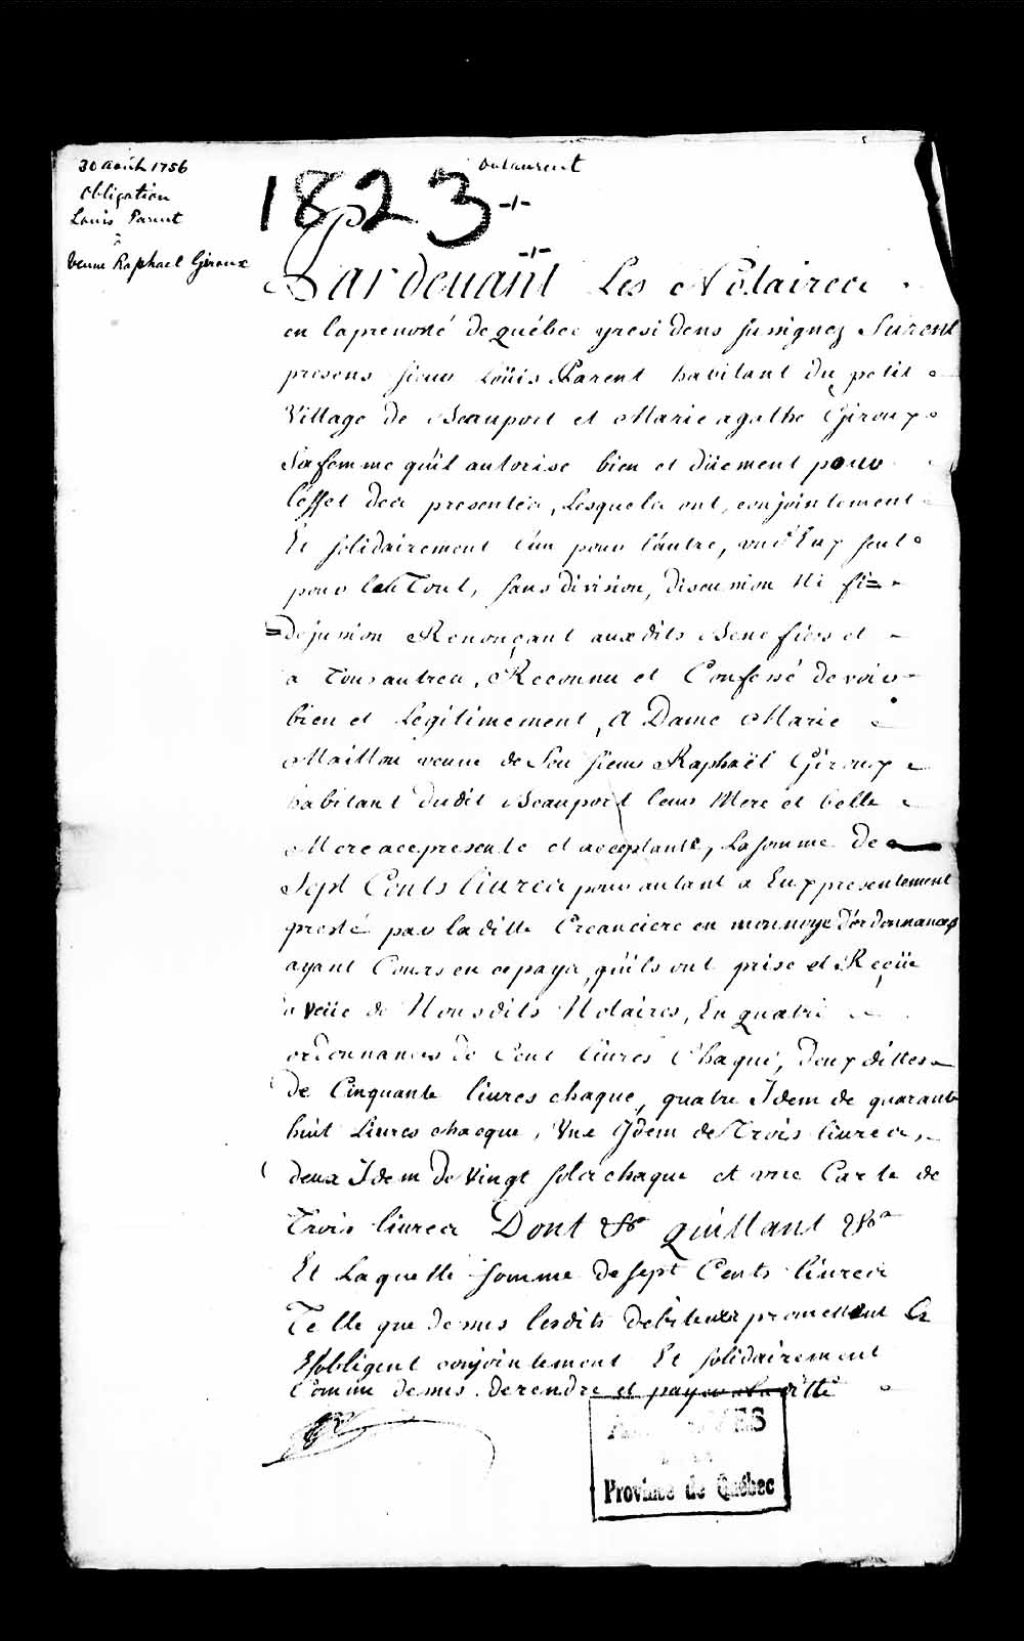 30 août 1756
Obligation
Louis Parent
à
Veuve Raphael Giroux
Dulaurent
1823
Pardevant Les Notaires
en la prevosté de québec y residens sousignez furent
presens sieur Loüis Parent habitant du petit
Village de Beauport et Marie agathe Giroux
Sa femme qu'il autorise bien et düement pour
l'effet des presentes, Lesquels ont, conjointement
Et solidairement l'un pour l'autre, un d'Eux seul
pour le Tout, sans division, discussion Ni fi=
=dejussion Renonçant auxdits Benefices et
a Tous autres, Reconnu et Confessé devoir
bien et Legitimement, A Dame Marie
Maillou veuve de feu sieur Raphaël Giroux
habitant dudit Beauport leur Mere et belle
Mere a ce presente et acceptante, La somme de
Sept Cents livres pour autant a Eux presentement
presté par la ditte Creanciere en monnoye d'ordonnances
ayant Cours en ce pays, qu'ils ont prise et Reçüe
a veüe de Nousdits Notaires, En quatre
ordonnances de Cent livres Chaque, deux dittes
de Cinquante livres chaque, quatre Idem de quarante
huit Livres chacque, Une Idem de Trois livres,
deux Idem de Vingt sols chaque et une Carte de
Trois livres Dont &a quittant &a
Et Laquelle somme de sept Cents livres
Telle que dessus lesdits debiteurs promettent Et
s'obligent conjointement Et solidairement
Comme dessus de rendre et payer a la ditte
ARCHIVES
Province de Québec